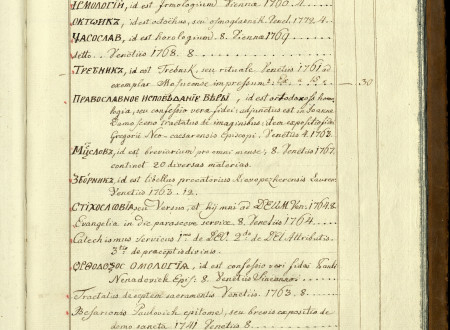 ІЄМОЛОГІЙ, id est Irmologium Viennæ 1766. 4.
ОКТѠИХЪ, id est odoëhus, seu Venet. 1772. 4.
ЧАСОСЛАВ, id est horologium. 8. Viennæ 1769
detto. Venetiis 1768. 8
ТРЕБНИКЪ, id est Trebnik, seu rituale Venetiis 1761 ad
exemplar Moscuense impressum 30
ПРАВОСЛАВНОЕ ИСПОВѢДАНЇЕ ВѢРЫ, id est orthodoxa homo
logia, seu confessio vera fidei; adjunctus est in Joanne
Damasceno tractatus de imaginibus; item expositio fidei
Gregorii Neo-caesarensis Episcopi. Venetiis 4. 1763.
id est breviarium pro omni mense; 8. Venetiis 1767.
continet 20 diversas materias.
ЗБОРНИКЪ, id est libellus precatorius
Venetiis 1763. 12.
СТІХОСЛОВІА seu Versus, et hymni ad DEUM Ven. 1764. 8.
Evangelia in die parasceve servire. 8. Venetiis 1764
Catechismus Servicus 1mo de DEO, 2do de DEI Attributis.
3tio de præceptis divinis.
ОРѲОДОѮОС ОМОЛОГІА, id est confessio veri fidei Pauli
Nenadovich Epis. 8. Venetiis
Tractatus de septem sacramentis Venetiis. 1763. 8
Besarionis Paulovich epitome, seu brevis expositio de
domo sancta 1741 Venetiis 8